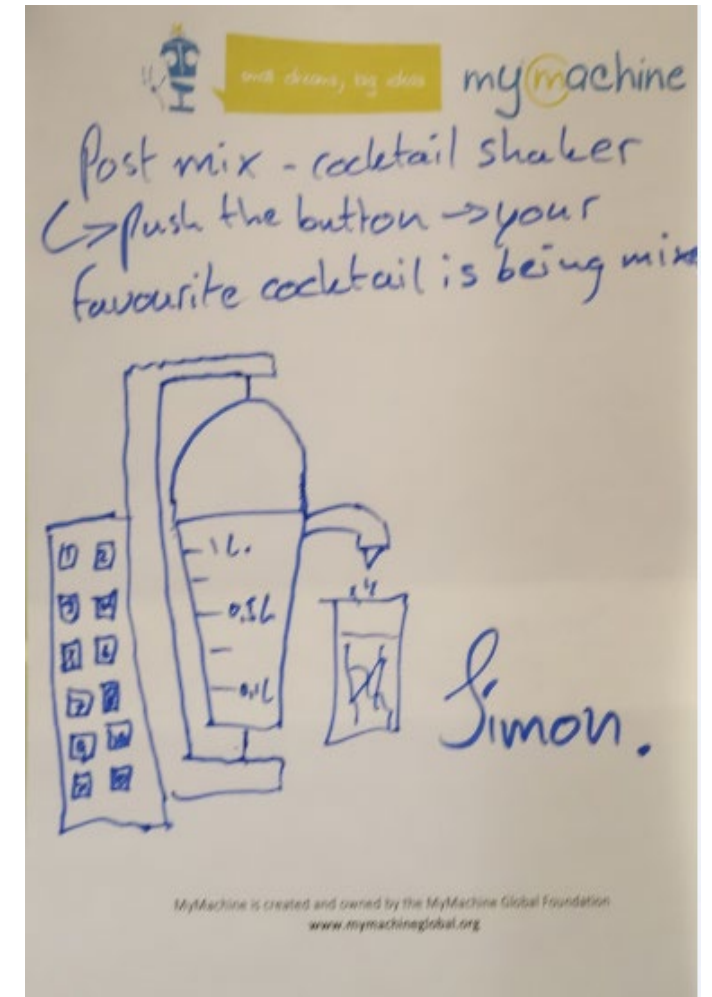 small dreams, big ideas
mymachine
Post mix - cocktail shaker
↳ push the button → your
favourite cocktail is being mixe
1 2
3 4
5 6
7 8
9 10
11 12
1L.
0,5L
0,1L
Simon.
MyMachine is created and owned by the MyMachine Global Foundation
www.mymachineglobal.org